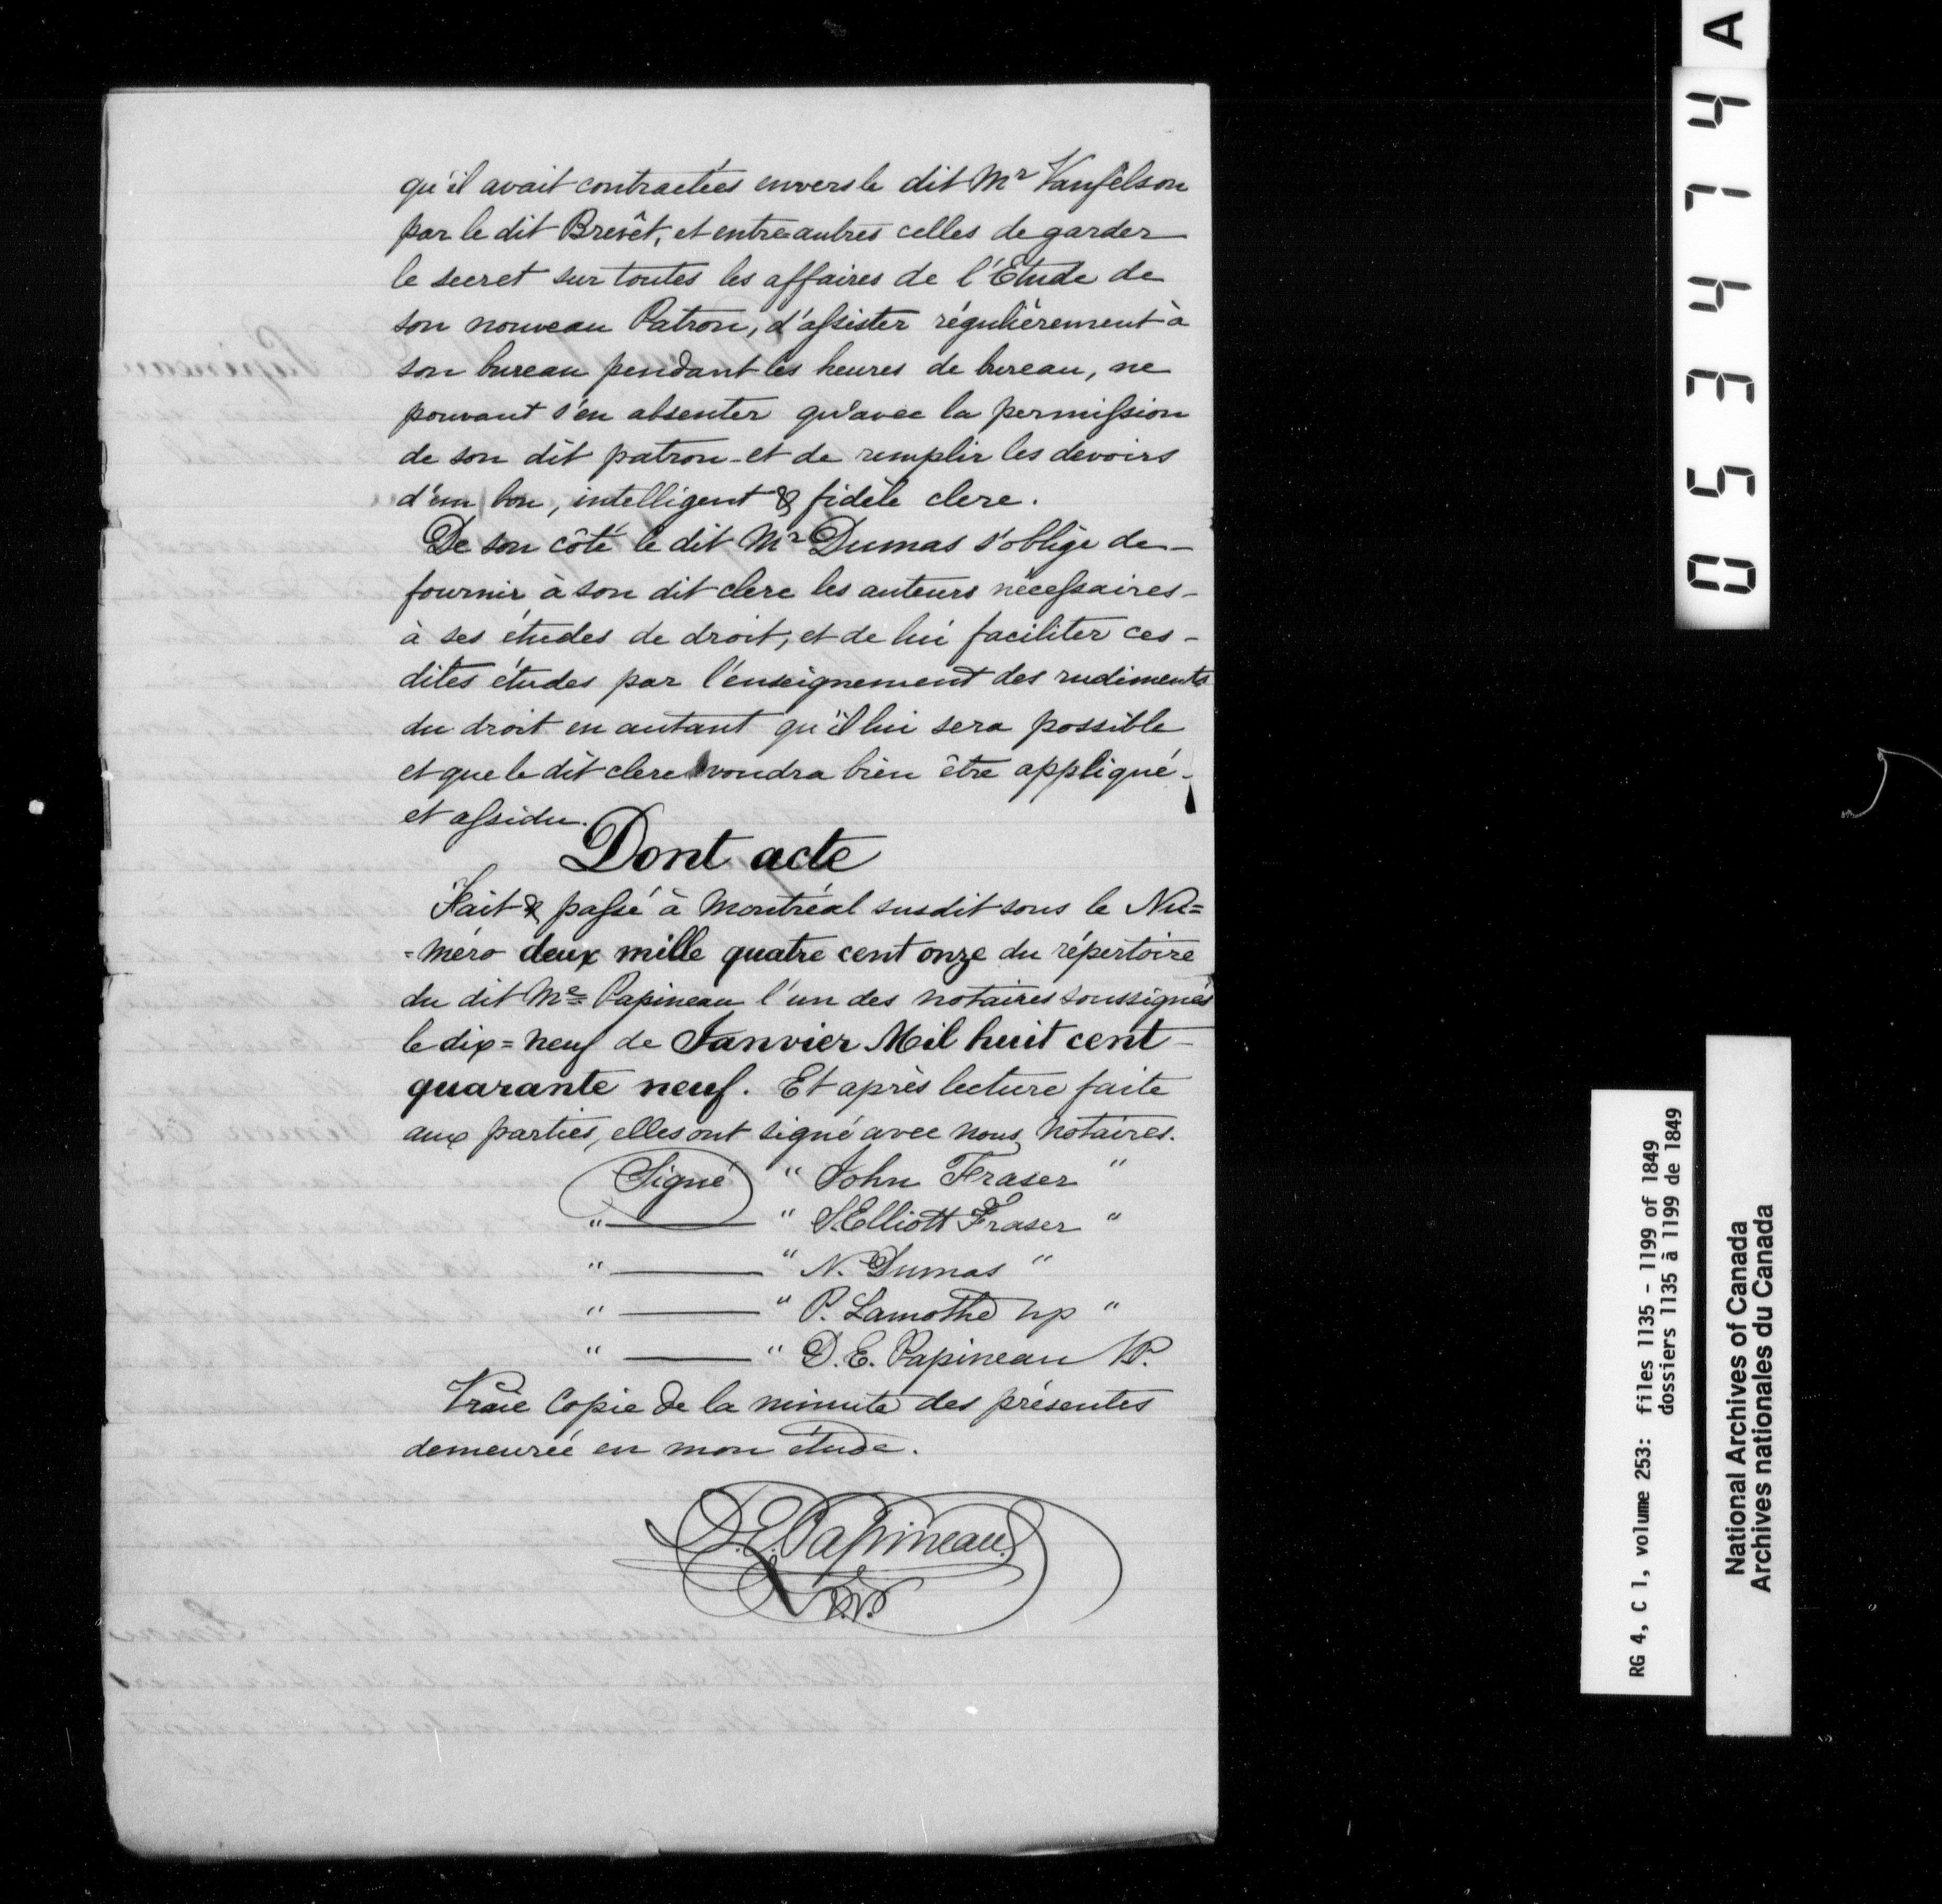 qu'il avait contractées envers le dit Mr Vanfelson
par le dit Brevêt, et entre=autres celles de garder
le secret sur toutes les affaires de l'Etude de
son nouveau Patron, d'assister régulièrement à
son bureau pendant les heures de bureau, ne
pouvant s'en absenter qu'avec la permission
de son dit patron et de remplir les devoirs
d'un bon, intelligent & fidèle clerc.
De son côté le dit Mr Dumas s'oblige de
fournir à son dit clerc les auteurs nécessaires
à ses études de droit, et de lui faciliter ces
dites études par l'enseignement des rudiments
du droit en autant qu'il lui sera possible
et que le dit clerc voudra bien être appliqué
et assidu.
Dont acte
Fait & passé à Montréal susdit sous le Nu=
=méro deux mille quatre cent onze du répertoire
du dit Me Papineau l'un des notaires soussignés
le dix=neuf de Janvier Mil huit cent
quarante neuf. Et après lecture faite
aux parties, elles ont signé avec nous notaires.
Signé " John Fraser "
" — " S. Elliott Fraser "
" — " N. Dumas "
" — " P. Lamothe np "
" — " D. E. Papineau NP.
Vraie Copie de la minute des présentes
demeurée en mon étude.
D.E. Papineau
N.P.
053474 A
RG 4, C 1, volume 253: files 1135 - 1199 of 1849
dossiers 1135 à 1199 de 1849
National Archives of Canada
Archives nationales du Canada